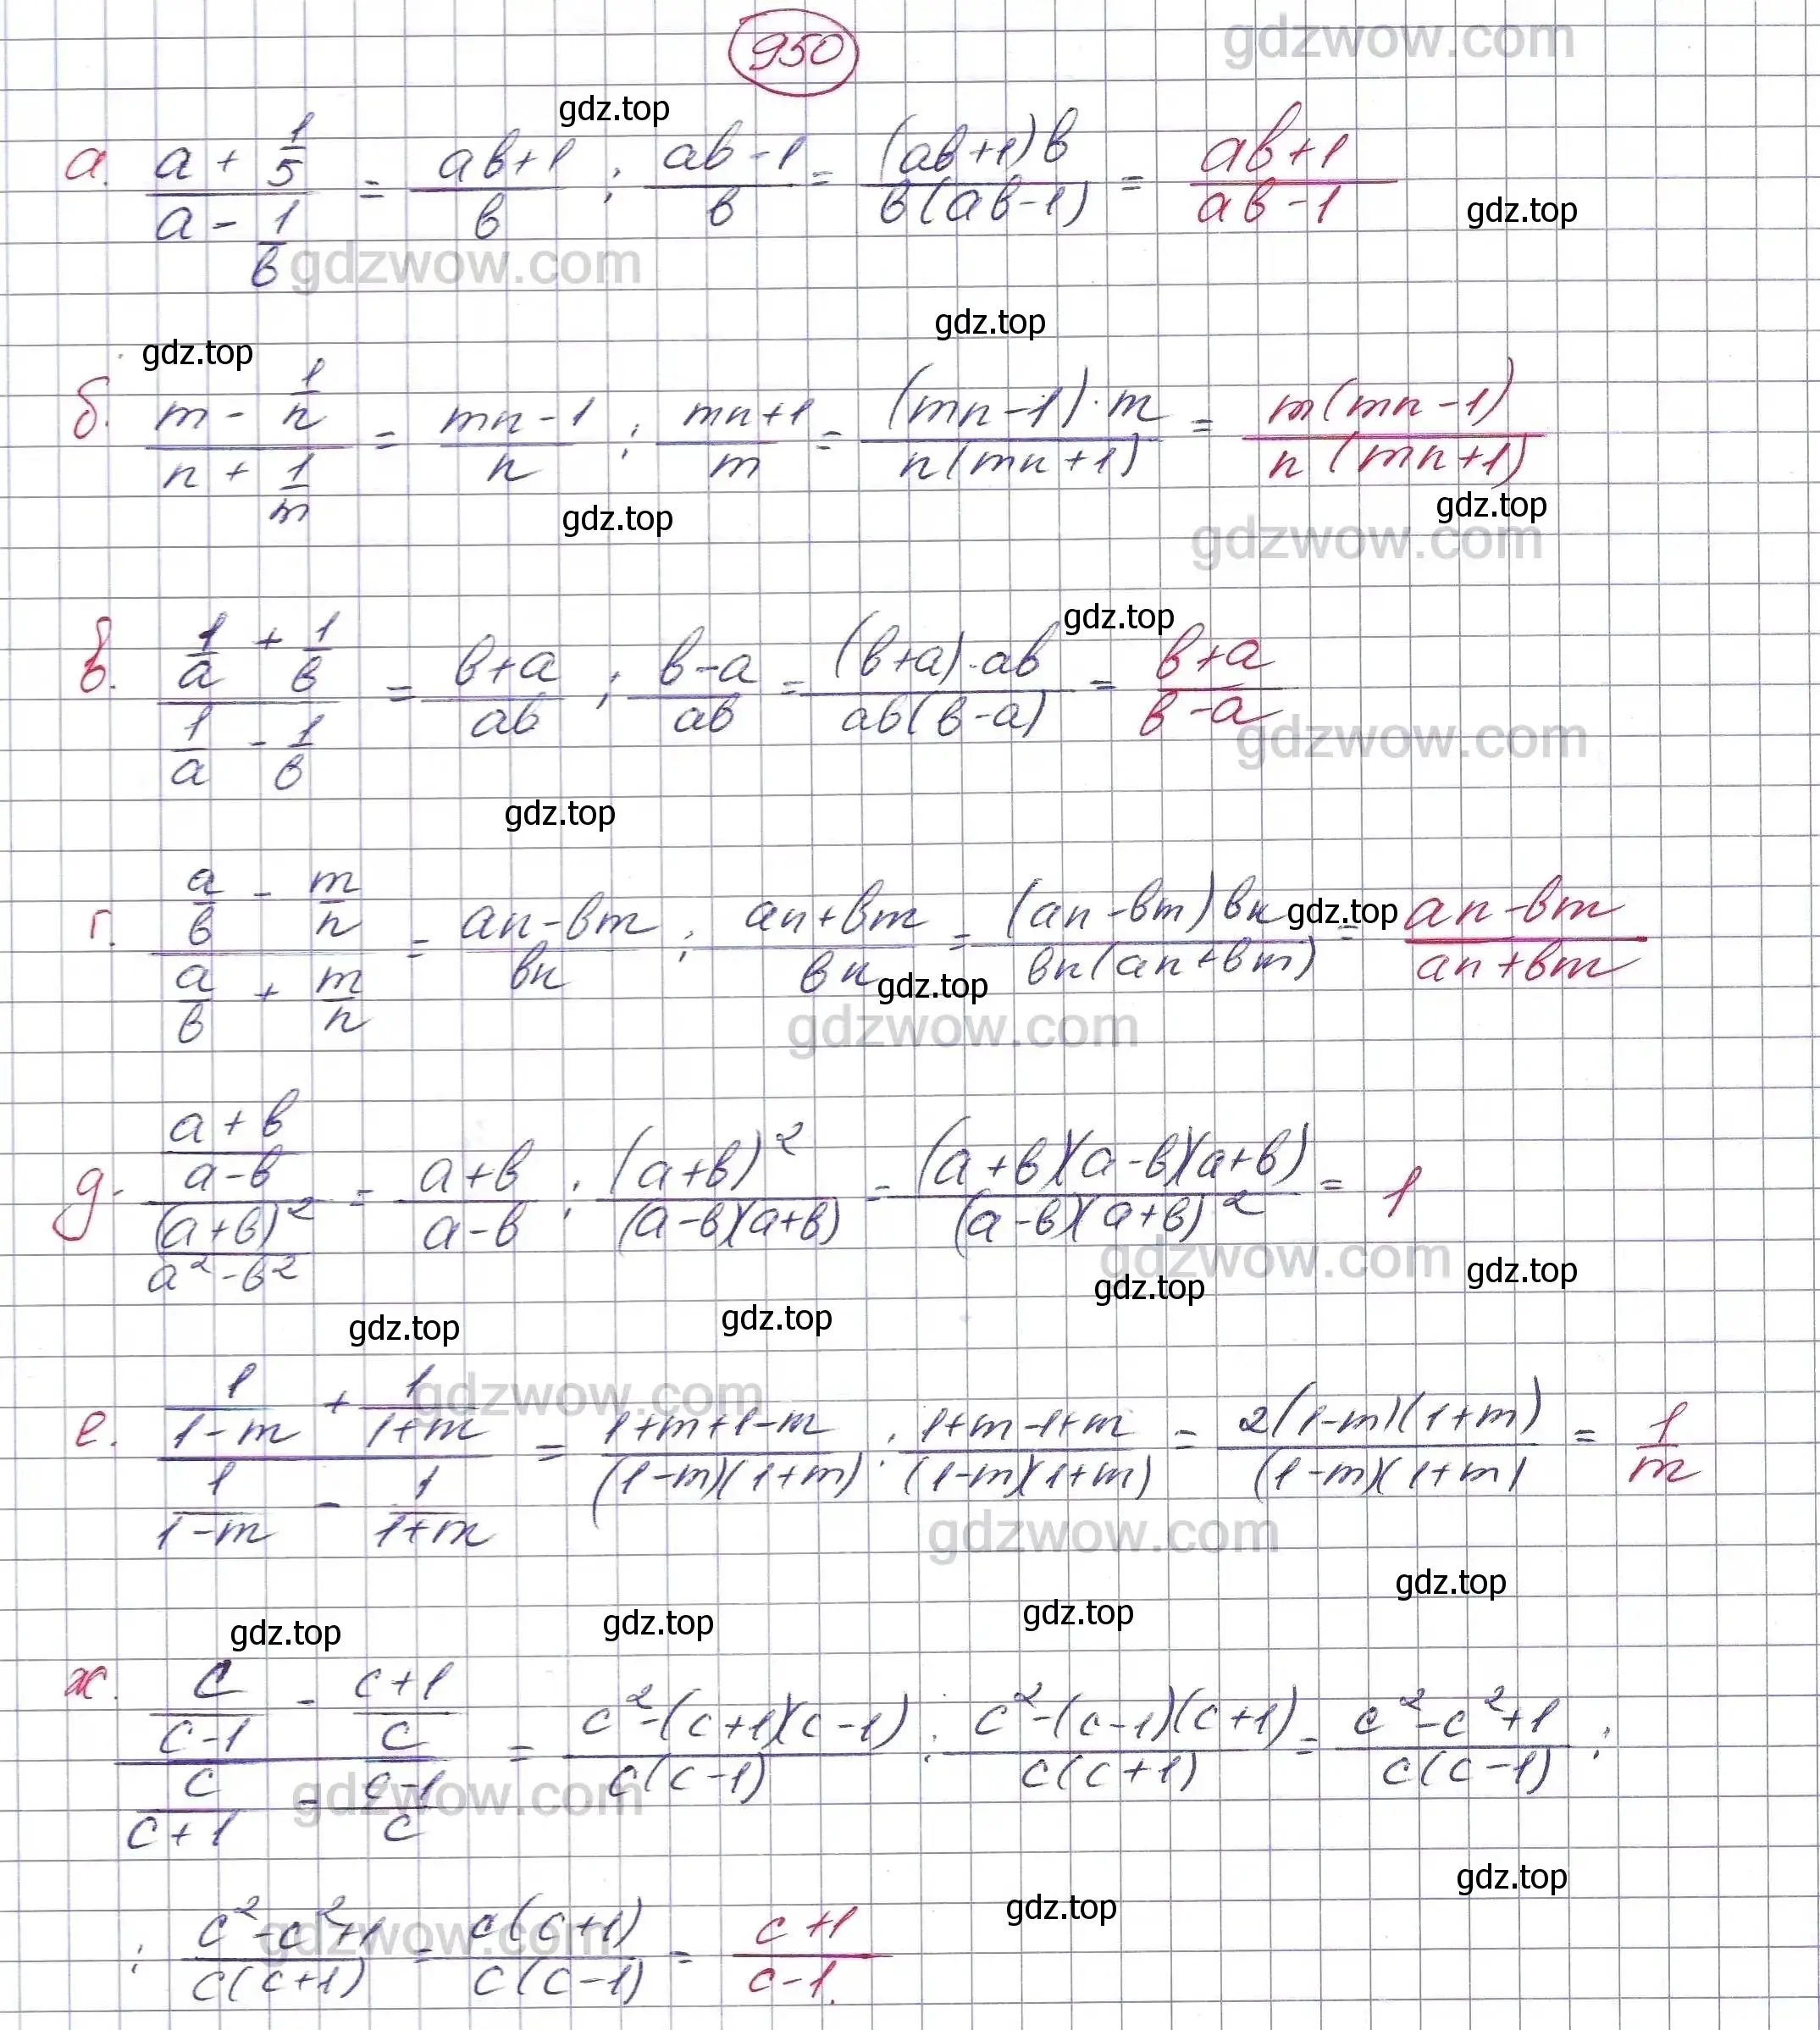 950
gdzwow.com
gdz.top
а. (a + 1/5)/(a - 1/в) = (aв+1)/в : (aв-1)/в = (aв+1)в/(в(aв-1)) = (aв+1)/(aв-1)
gdz.top
gdzwow.com
gdz.top
gdz.top
б. (m - 1/n)/(n + 1/m) = (mn-1)/n : (mn+1)/m = (mn-1)·m/(n(mn+1)) = m(mn-1)/(n(mn+1))
gdz.top
gdz.top
gdzwow.com
gdz.top
в. (1/a + 1/в)/(1/a - 1/в) = (в+a)/(aв) : (в-a)/(aв) = (в+a)·aв/(aв(в-a)) = (в+a)/(в-a)
gdzwow.com
gdz.top
г. (a/в - m/n)/(a/в + m/n) = (an-вm)/(вn) : (an+вm)/(вn) = (an-вm)вn/(вn(an+вm)) = (an-вm)/(an+вm)
gdz.top
gdz.top
gdzwow.com
д. ((a+в)/(a-в))/((a+в)²/(a²-в²)) = (a+в)/(a-в) : (a+в)²/((a-в)(a+в)) = (a+в)(a-в)(a+в)/((a-в)(a+в)²) = 1
gdzwow.com
gdz.top
gdz.top
gdz.top
gdz.top
gdzwow.com
е. (1/(1-m) + 1/(1+m))/(1/(1-m) - 1/(1+m)) = (1+m+1-m)/((1-m)(1+m)) : (1+m-1+m)/((1-m)(1+m)) = 2(1-m)(1+m)/((1-m)(1+m) = 1/m
gdzwow.com
gdz.top
gdz.top
gdz.top
gdz.top
ж. (c/(c-1) - (c+1)/c)/(c/(c+1) - (c-1)/c) = (c²-(c+1)(c-1))/(c(c-1)) : (c²-(c-1)(c+1))/(c(c+1)) = (c²-c²+1)/(c(c-1)) :
gdzwow.com
gdz.top
gdz.top
: (c²-c²+1)/(c(c+1)) = c(c+1)/(c(c-1)) = (c+1)/(c-1).
gdzwow.com